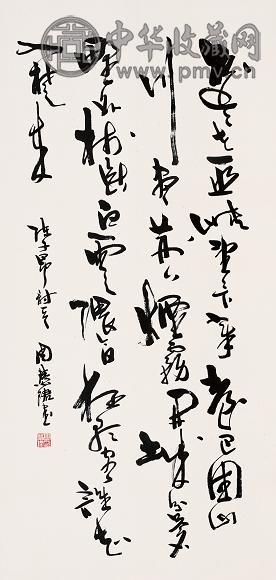 中华收藏网
www.pmv.cn
遥遥去巫峡望望下章台巴国山
川尽荆门烟雾开城分苍
野外树断白云隈今日狂歌客谁知
入楚来
陈子昂诗 周慧珺书